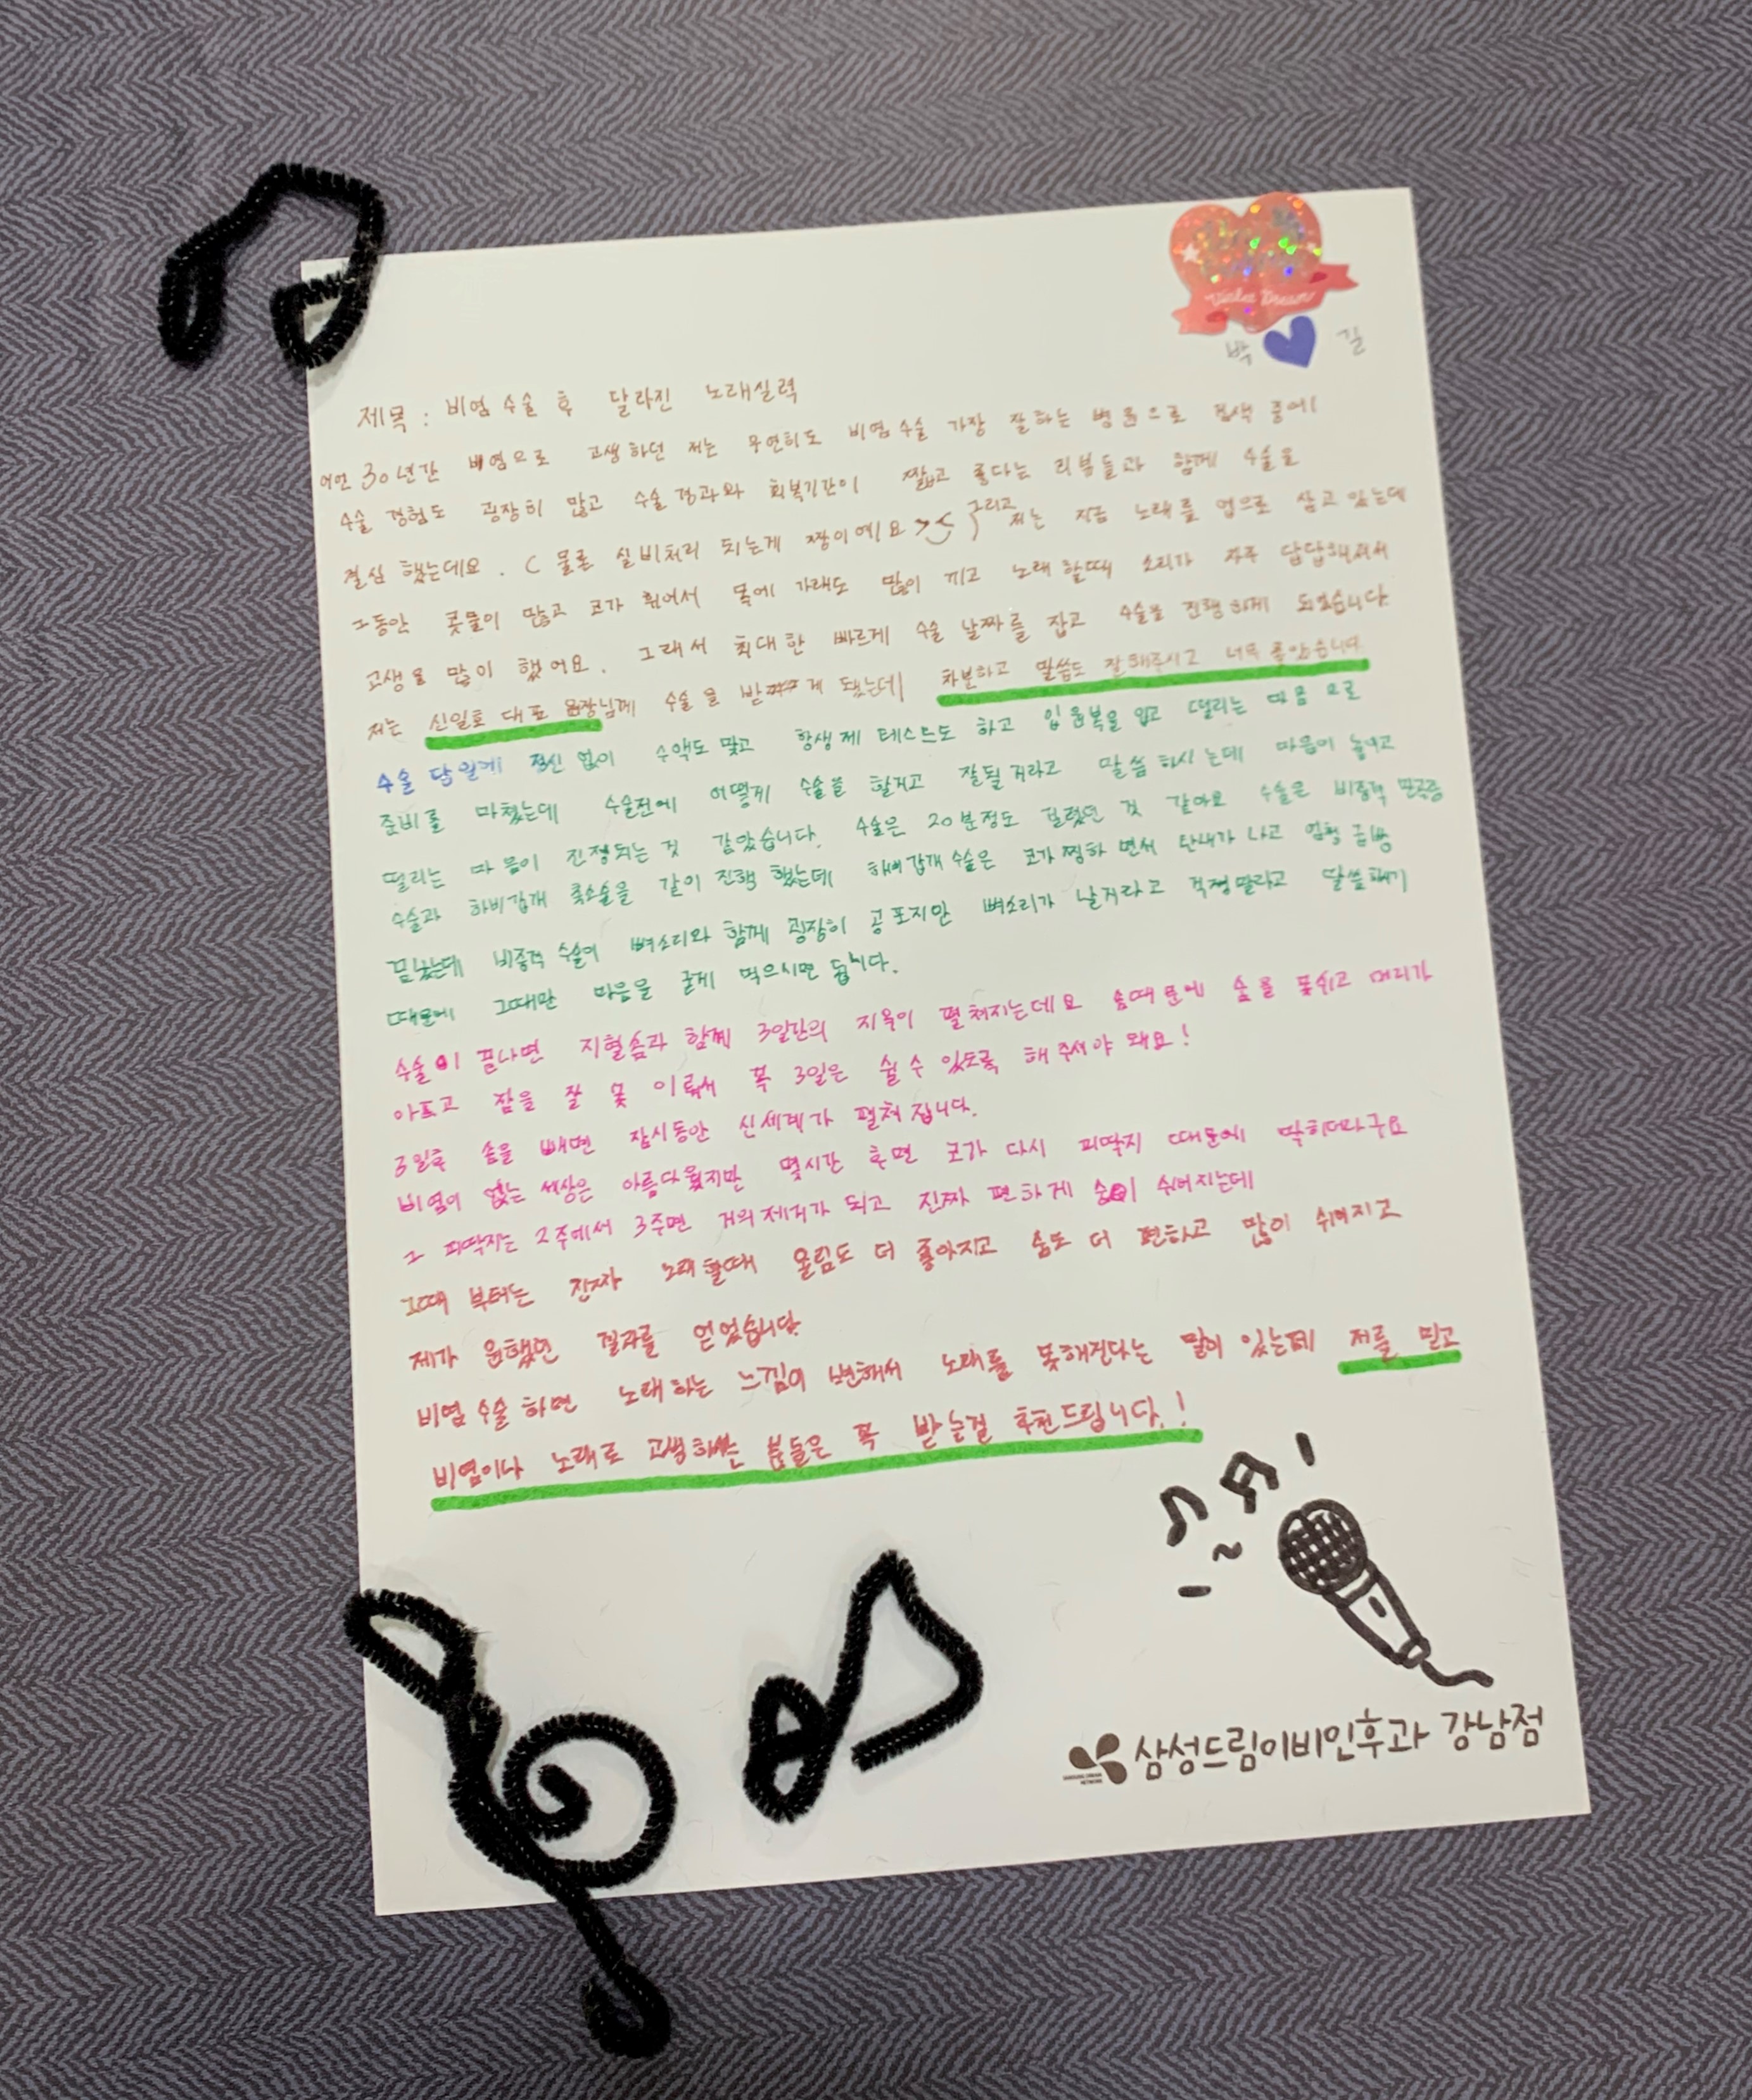 Violet Dream
박 길
제목 : 비염수술 후 달라진 노래실력
어언 30년간 비염으로 고생하던 저는 우연히도 비염수술 가장 잘하는 병원으로 검색 중에
수술 경험도 굉장히 많고 수술경과와 회복기간이 짧고 좋다는 리뷰들과 함께 수술을
결심했는데요. ( 물론 실비처리 되는게 짱이에요 >‿< ) 그리고 저는 지금 노래를 업으로 삼고 있는데
그동안 콧물이 많고 코가 휘어서 목에 가래도 많이 끼고 노래할때 소리가 자주 답답해져서
고생을 많이 했어요. 그래서 최대한 빠르게 수술 날짜를 잡고 수술을 진행하게 되었습니다.
저는 신일호 대표 원장님께 수술을 받게 됐는데 차분하고 말씀도 잘해주시고 너무 좋았습니다.
수술 당일에 정신 없이 수액도 맞고 항생제 테스트도 하고 입원복을 입고 떨리는 마음으로
준비를 마쳤는데 수술전에 어떻게 수술을 할거고 잘될거라고 말씀하시는데 마음이 놓이고
떨리는 마음이 진정되는 것 같았습니다. 수술은 20분정도 걸렸던 것 같아요 수술은 비중격 만곡증
수술과 하비갑개 축소술을 같이 진행했는데 하비갑개수술은 코가 찡하면서 단내가 나고 엄청 금방
끝났는데 비중격 수술이 뼈소리와 함께 굉장히 공포지만 뼈소리가 날거라고 걱정말라고 말씀하기
때문에 그때만 마음을 굳게 먹으시면 됩니다.
수술이 끝나면 지혈솜과 함께 3일간의 지옥이 펼쳐지는데요 솜때문에 숨을 못쉬고 머리가
아프고 잠을 잘 못 이뤄서 푹 3일은 쉴 수 있도록 해주셔야 돼요!
3일후 솜을 빼면 잠시동안 신세계가 펼쳐집니다.
비염이 없는 세상은 아름다웠지만 몇시간 후면 코가 다시 피딱지 때문에 막히더라구요
그 피딱지는 2주에서 3주면 거의 제거가 되고 진짜 편하게 숨이 쉬어지는데
그때부터는 진짜 노래할때 울림도 더 좋아지고 숨도 더 편하고 많이 쉬어지고
제가 원했던 결과를 얻었습니다.
비염 수술하면 노래하는 느낌이 변해서 노래를 못해진다는 말이 있는데 저를 믿고
비염이나 노래로 고생하는 분들은 꼭 받는걸 추천드립니다.!
삼성드림이비인후과 강남점